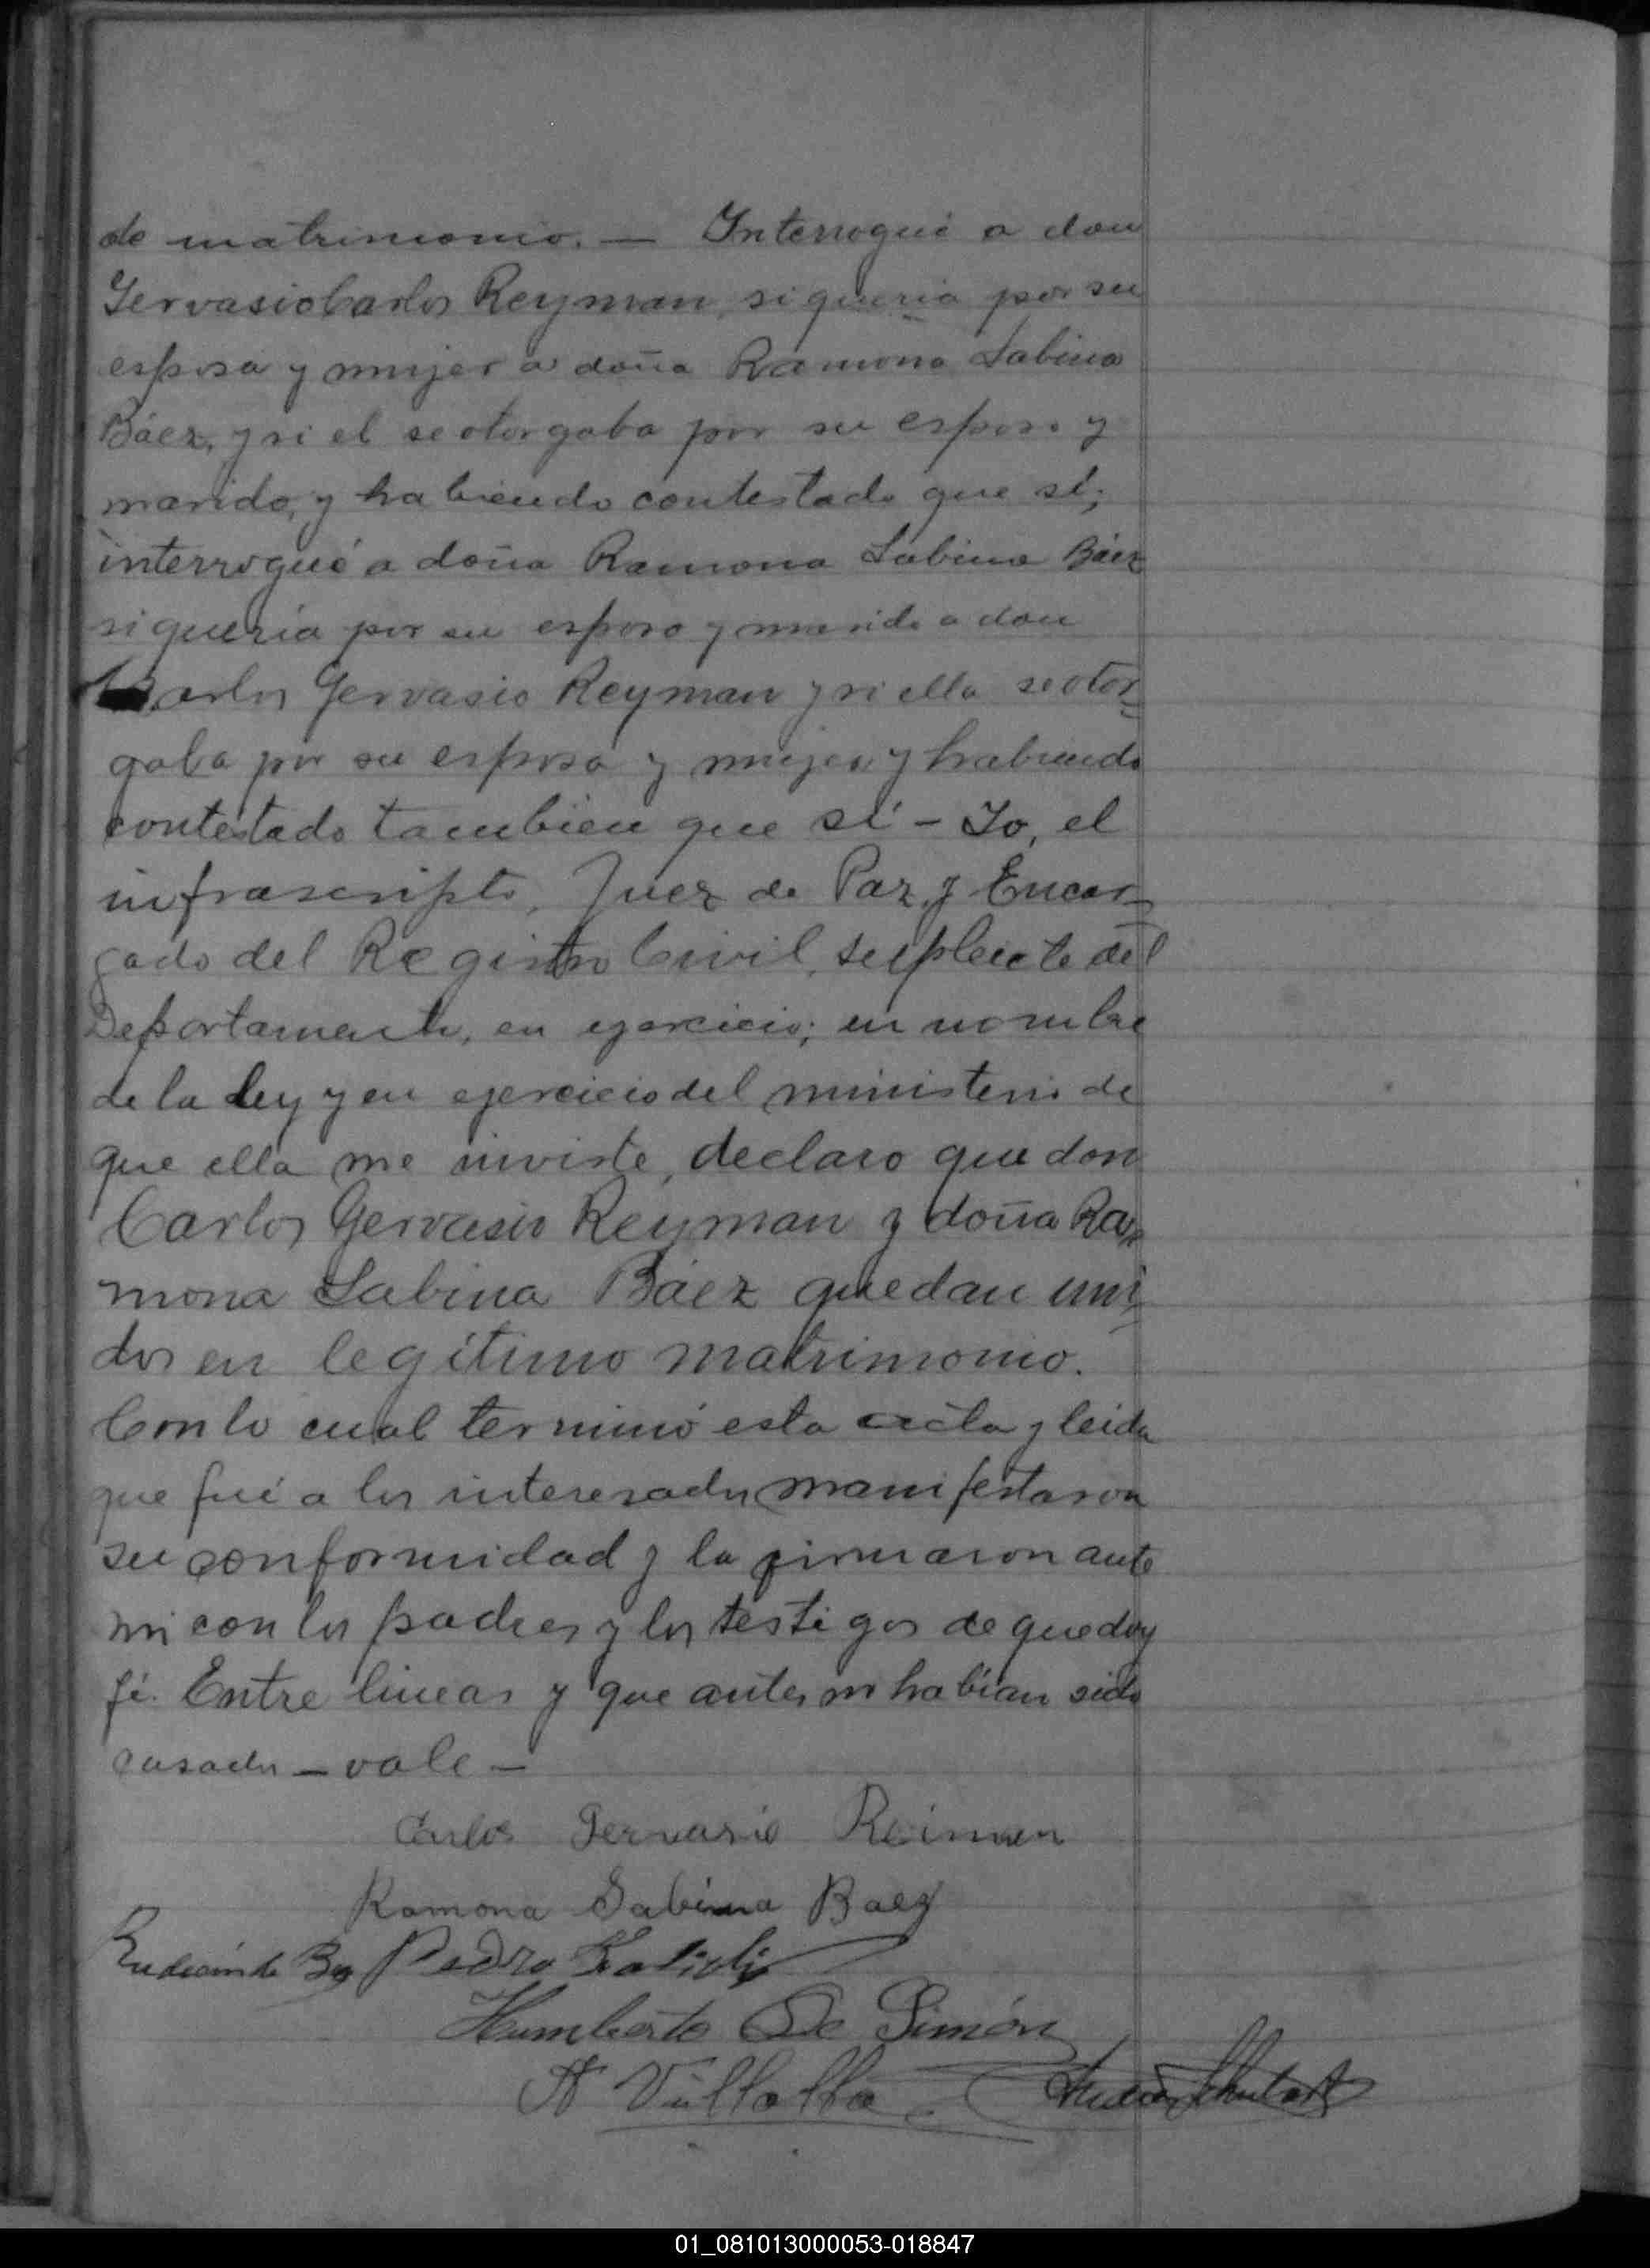 de matrimonio. — Interrogué a don
Gervasio Carlos Reyman, si quería por su
esposa y mujer a doña Ramona Sabina
Báez, y si el se otorgaba por su esposo y
marido, y habiendo contestado que sí;
interrogué a doña Ramona Sabina Báez
si quería por su esposo y marido a don
Carlos Gervasio Reyman y si ella se otor=
gaba por su esposa y mujer y habiendo
contestado también que sí - Yo, el
infrascripto, Juez de Paz y Encar-
gado del Registro Civil, suplente del
Departamento, en ejercicio; en nombre
de la ley y en ejercicio del ministerio de
que ella me inviste, declaro que don
Carlos Gervasio Reyman y doña Ra=
mona Sabina Báez quedan uni=
dos en legítimo matrimonio.
Con lo cual terminó esta acta y leida
que fué a los interesados manifestaron
su conformidad y la firmaron ante
mi con los padres y los testigos de que doy
fé. Entre lineas y que antes no habían sido
casados — vale —
Carlos Gervasio Reiman
Ramona Sabina Baez
Pedro
Humberto De Simón
A Villalba
01_081013000053-018847